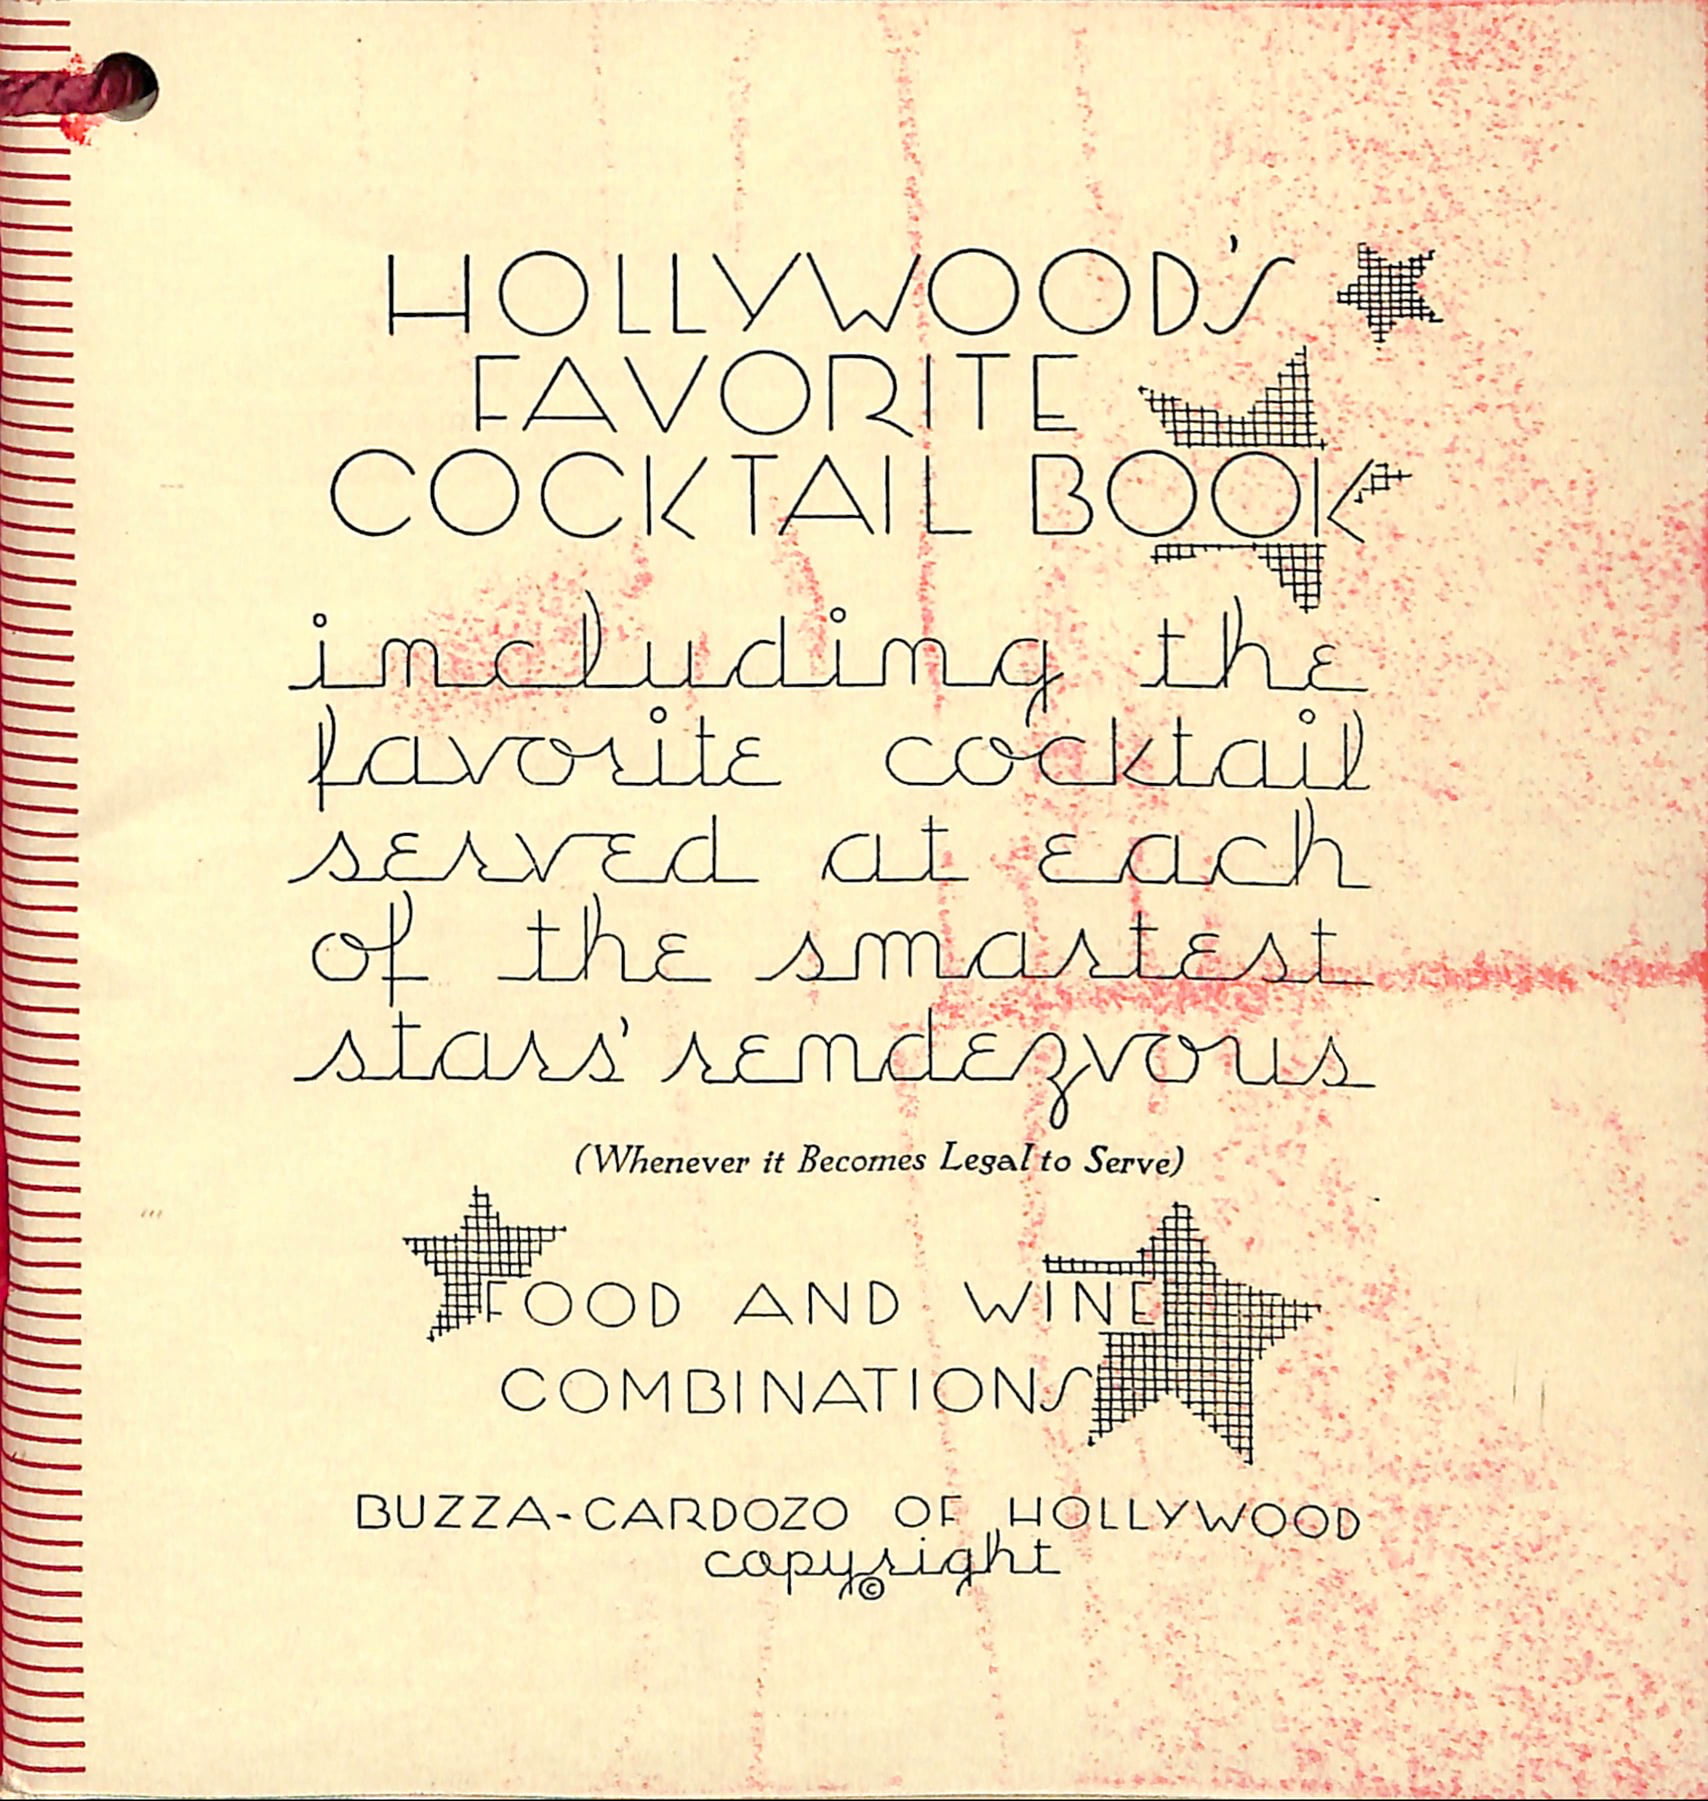 HOLLYWOOD'S
FAVORITE
COCKTAIL BOOK
including the
favorite cocktail
served at each
of the smartest
stars' rendezvous
(Whenever it Becomes Legal to Serve)
FOOD AND WINE
COMBINATIONS
BUZZA-CARDOZO OF HOLLYWOOD
copyright
©